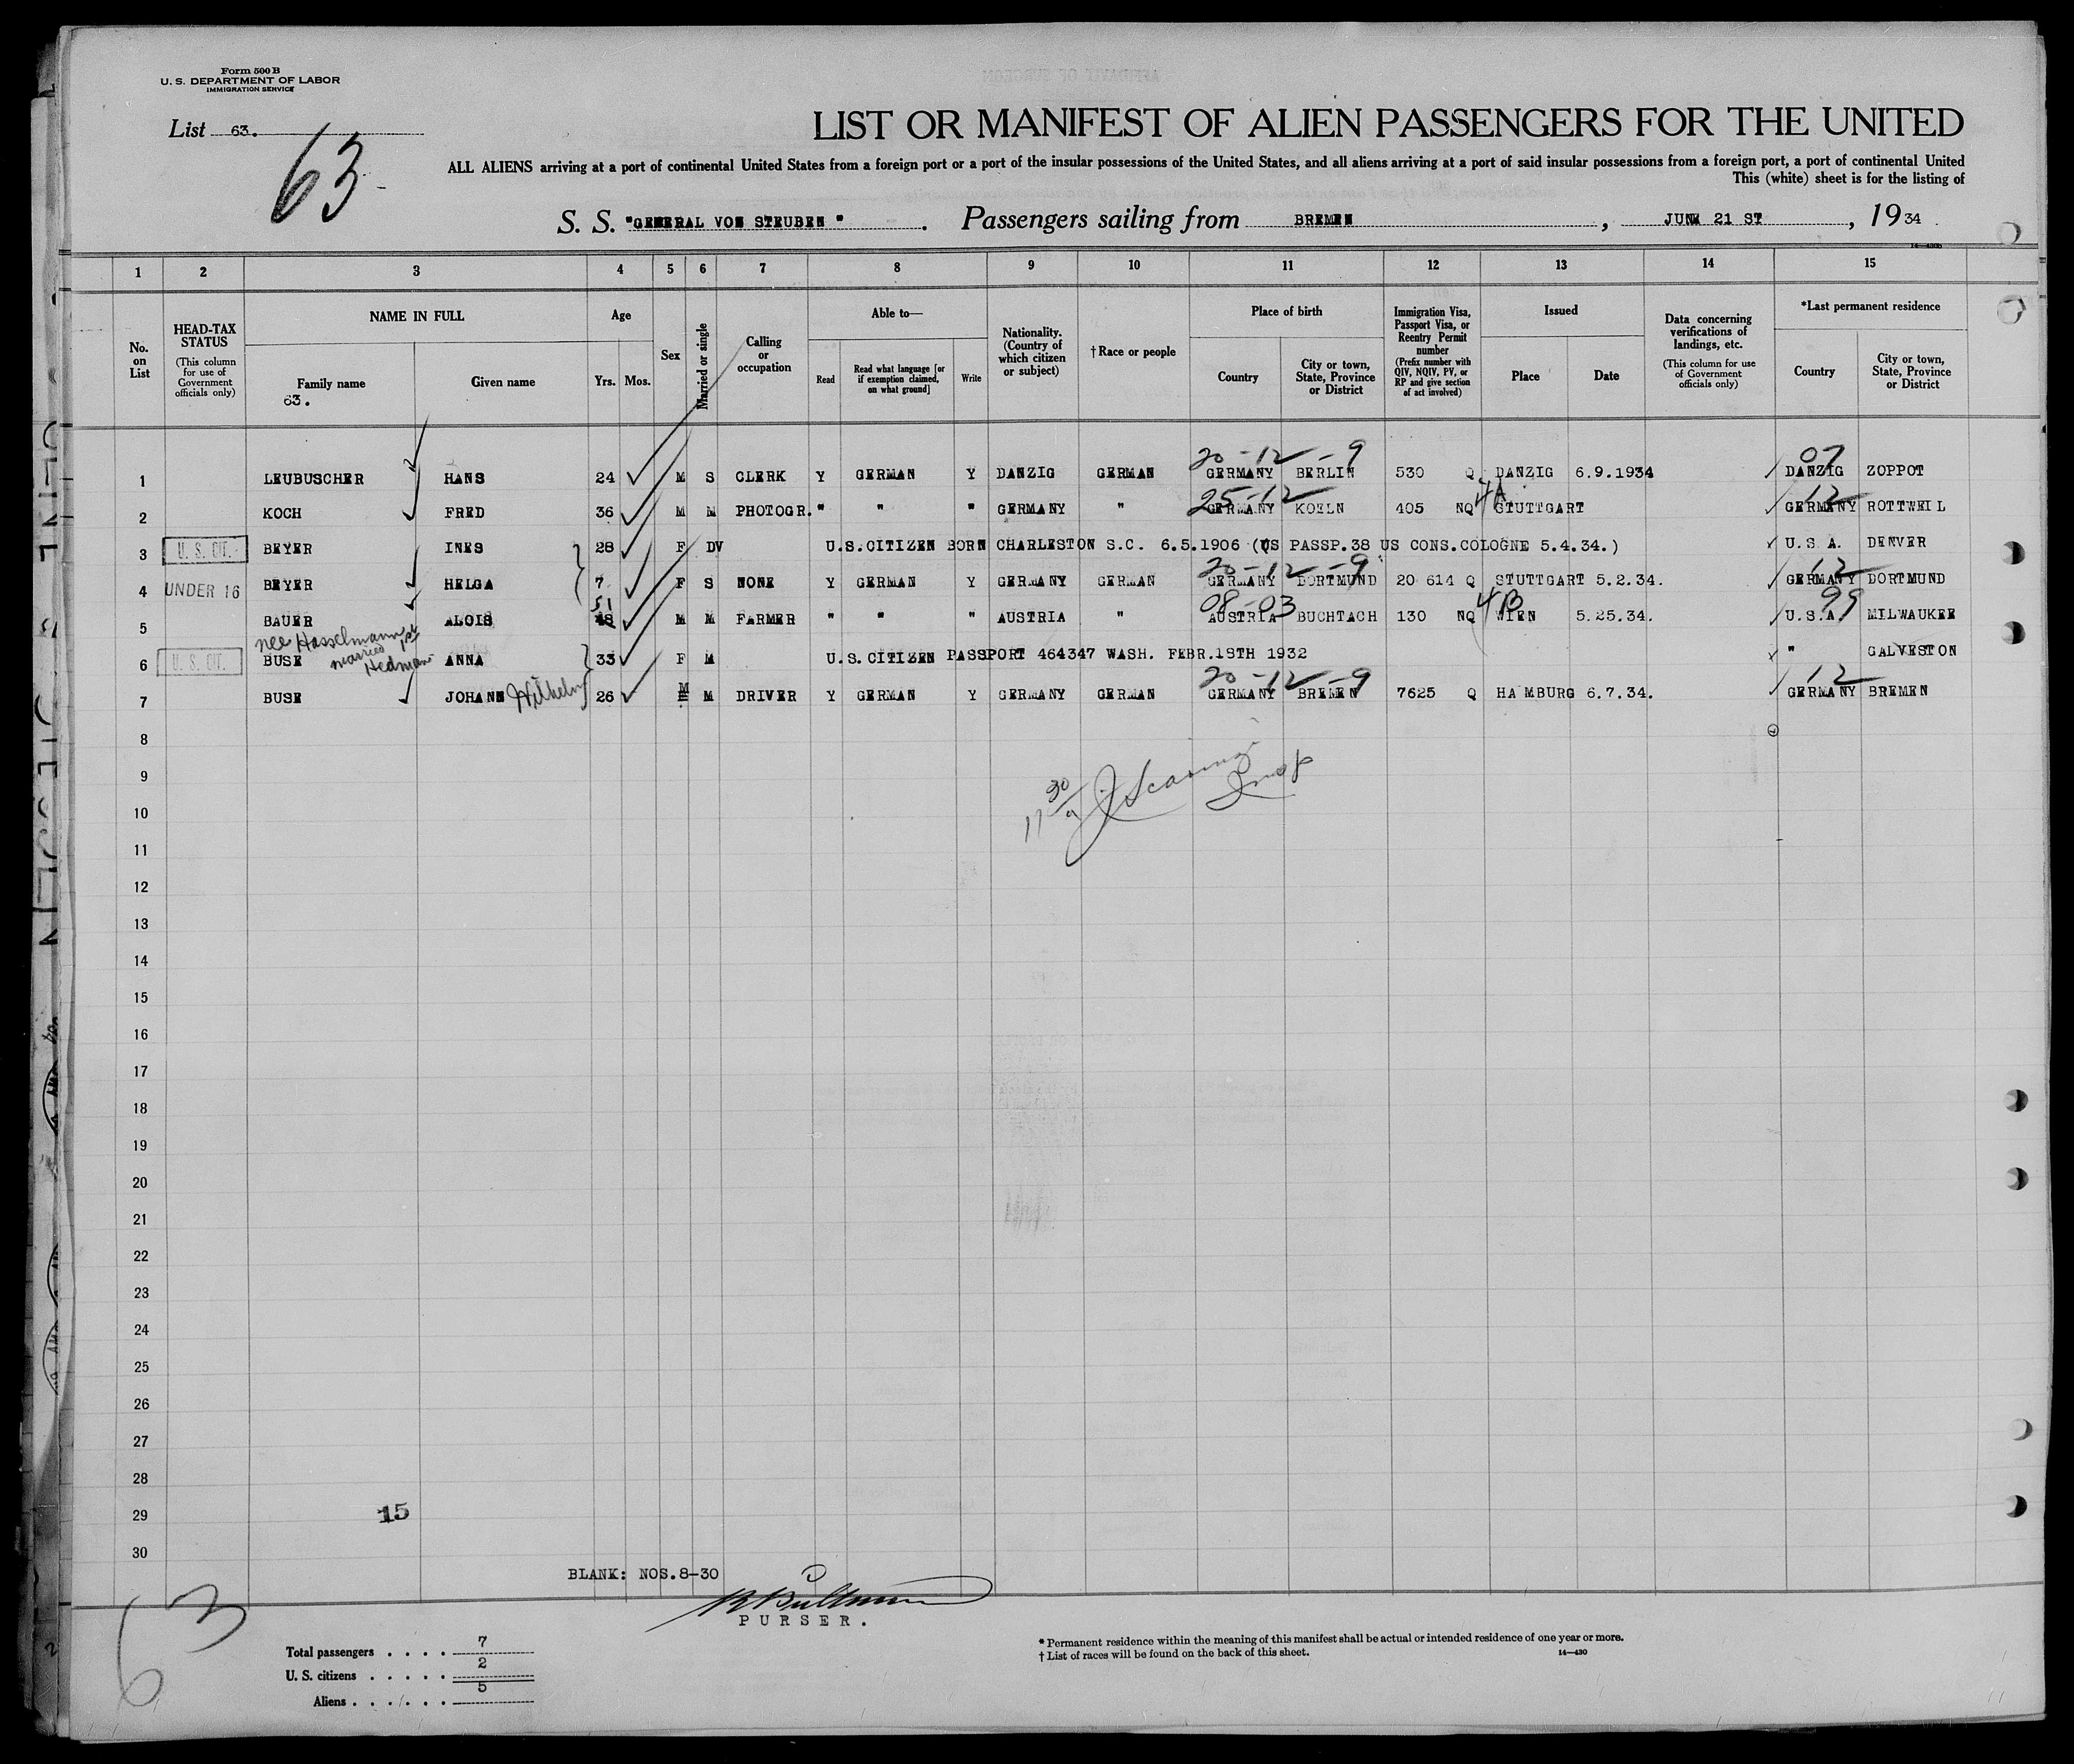 Form 500 B
U. S. DEPARTMENT OF LABOR
IMMIGRATION SERVICE
List 63.
63
LIST OR MANIFEST OF ALIEN PASSENGERS FOR THE UNITED
ALL ALIENS arriving at a port of continental United States from a foreign port or a port of the insular possessions of the United States, and all aliens arriving at a port of said insular possessions from a foreign port, a port of continental United
This (white) sheet is for the listing of
S. S. "GENERAL VON STEUBEN" . Passengers sailing from BREMEN , JUNE 21 ST , 1934
1 2 3 4 5 6 7 8 9 10 11 12 13 14 15
No. on List
HEAD-TAX STATUS (This column for use of Government officials only)
NAME IN FULL
Family name
63.
Given name
Age
Yrs. Mos.
Sex
Married or single
Calling or occupation
Able to—
Read
Read what language [or if exemption claimed, on what ground]
Write
Nationality. (Country of which citizen or subject)
† Race or people
Place of birth
Country
City or town, State, Province or District
Immigration Visa, Passport Visa, or Reentry Permit number (Prefix number with QIV, NQIV, PV, or RP and give section of act involved)
Issued
Place
Date
Data concerning verifications of landings, etc. (This column for use of Government officials only)
*Last permanent residence
Country
City or town, State, Province or District
20-12-9 07
1 LEUBUSCHER HANS 24 M S CLERK Y GERMAN Y DANZIG GERMAN GERMANY BERLIN 530 Q DANZIG 6.9.1934 DANZIG ZOPPOT
25-12 4A 12
2 KOCH FRED 36 M M PHOTOGR. " " " GERMANY " GERMANY KOELN 405 NQ STUTTGART GERMANY ROTTWEIL
3 U. S. CIT. BEYER INES 28 F DV U.S.CITIZEN BORN CHARLESTON S.C. 6.5.1906 (US PASSP.38 US CONS.COLOGNE 5.4.34.) U.S.A. DENVER
20-12-9 12
4 UNDER 16 BEYER HELGA 7 F S NONE Y GERMAN Y GERMANY GERMAN GERMANY DORTMUND 20 614 Q STUTTGART 5.2.34. GERMANY DORTMUND
51 08-03 4B 99
5 BAUER ALOIS 48 M M FARMER " " " AUSTRIA " AUSTRIA BUCHTACH 130 NQ WIEN 5.25.34. U.S.A. MILWAUKEE
nee Hasselmann
married 1st
Hedman
6 U. S. CIT. BUSE ANNA 33 F M U.S.CITIZEN PASSPORT 464347 WASH. FEBR.18TH 1932 " GALVESTON
20-12-9 12
7 BUSE JOHANN Wilhelm 26 M M DRIVER Y GERMAN Y GERMANY GERMAN GERMANY BREMEN 7625 Q HAMBURG 6.7.34. GERMANY BREMEN
8
9
11 30 Insp
10
11
12
13
14
15
16
17
18
19
20
21
22
23
24
25
26
27
28
29 15
30
BLANK: NOS.8-30
PURSER.
63
Total passengers . . . . 7
U. S. citizens . . . . . 2
Aliens . . . . . . 5
* Permanent residence within the meaning of this manifest shall be actual or intended residence of one year or more.
† List of races will be found on the back of this sheet.
14—430